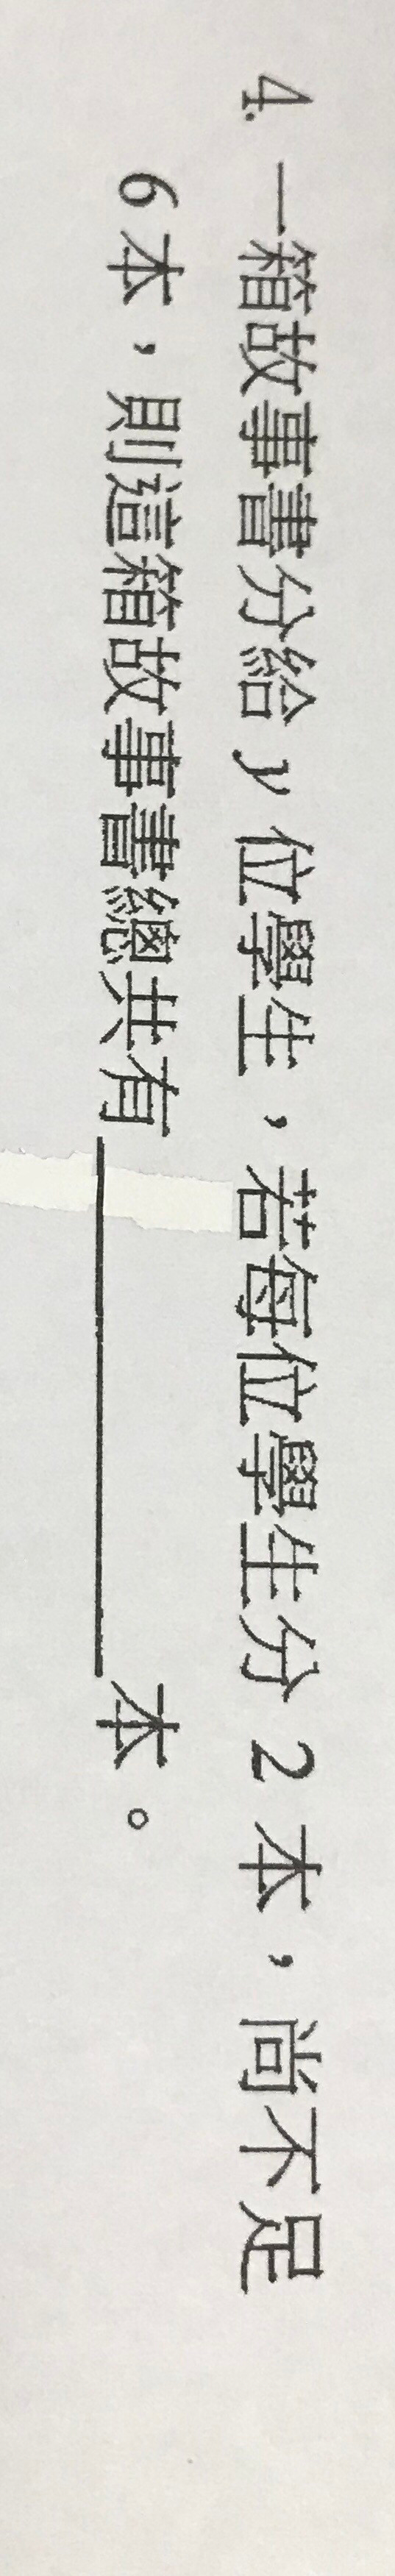 4. 一箱故事書分給 y 位學生，若每位學生分 2 本，尚不足
6 本，則這箱故事書總共有＿＿＿＿＿＿本。